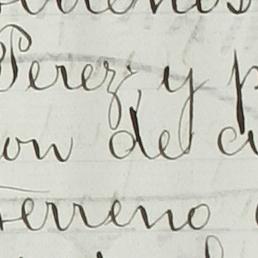 Perez y p
on de a
terreno